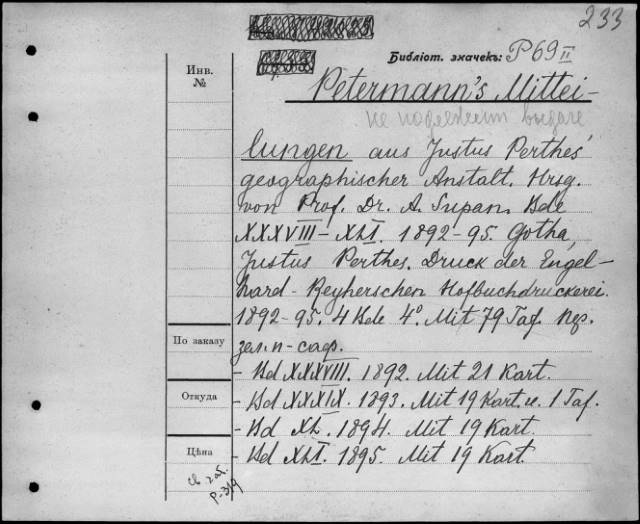 233
Библіот. значекъ: P69 II
Инв.
№
Petermann's Mittei-
не подлежит выдаче
lungen aus Justus Perthes'
geographischer Anstalt. Hrsg.
von Prof. Dr. A. Supan. Bde
XXXVIII-XLI. 1892-95. Gotha,
Justus Perthes. Druck der Engel-
hard-Reyherschen Hofbuchdruckerei.
1892-95. 4 Bde 4°. Mit 79 Taf.
По заказу
- Bd XXXVIII. 1892. Mit 21 Kart.
Откуда
- Bd XXXIX. 1893. Mit 19 Kart. u. 1 Taf.
- Bd XL. 1894. Mit 19 Kart.
Цѣна
- Bd XLI. 1895. Mit 19 Kart.